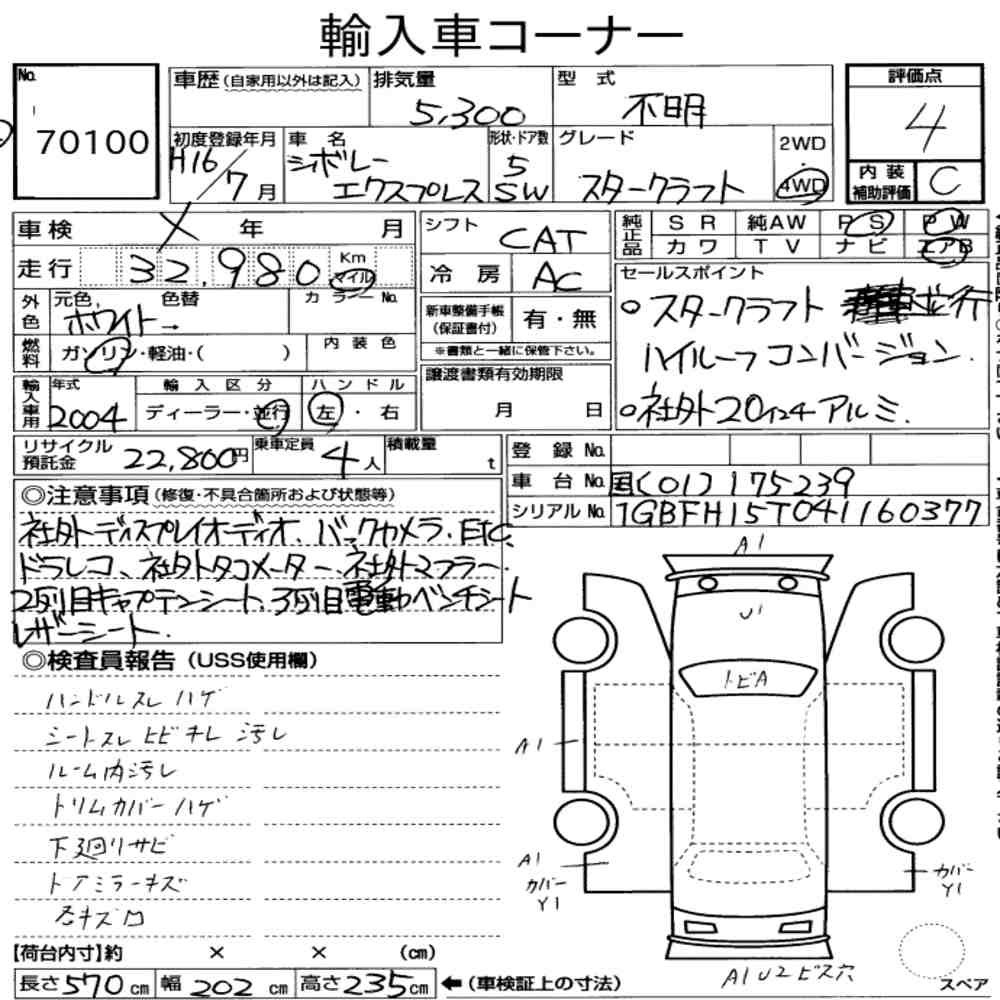 輸入車コーナー
No. 70100
車歴 (自家用以外は記入) 排気量 5,300 型式 不明
評価点 4
初度登録年月 H16/7月 車名 シボレー エクスプレス 形状・ドア数 5 SW グレード スタークラフト 2WD・4WD
内装補助評価 C
車検 年 月 シフト CAT 純正品 SR 純AW PS PW
カワ TV ナビ エアB
走行 32,980 Km マイル 冷房 AC
セールスポイント
スタークラフト 並行
ハイルーフコンバージョン.
社外20インチアルミ.
外色 元色 色替 ホワイト→ カラーNo.
新車整備手帳(保証書付) 有・無
※書類と一緒に保管下さい。
燃料 ガソリン・軽油・( ) 内装色
輸入車用 年式 2004 輸入区分 ディーラー・並行 ハンドル 左・右
譲渡書類有効期限 月 日
リサイクル預託金 22,800円 乗車定員 4人 積載量 t
登録No.
車台No. 国[01]175239
シリアルNo. 1GBFH15T041160377
◎注意事項 (修復・不具合箇所および状態等)
社外ディスプレイオーディオ、バックカメラ、ETC、
ドラレコ、社外タコメーター、社外マフラー、
2列目キャプテンシート、3列目電動ベンチシート
レザーシート.
◎検査員報告 (USS使用欄)
ハンドルスレ ハゲ
シートスレ ヒビキレ 汚レ
ルーム内汚レ
トリムカバーハゲ
下廻りサビ
ドアミラーキズ
A1
U1
トビA
A1
A1
カバーY1
カバーY1
A1 U2 ビス穴
スペア
【荷台内寸】約 × × (cm)
長さ570cm 幅202cm 高さ235cm ←(車検証上の寸法)